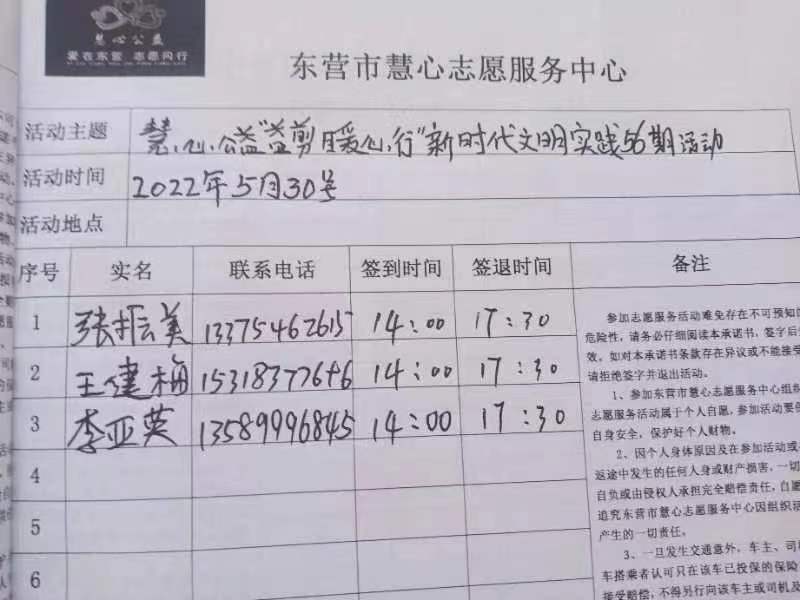 慧心公益
爱在东营 志愿同行
东营市慧心志愿服务中心
活动主题 慧心公益"益剪暖心行"新时代文明实践56期活动
活动时间 2022年5月30号
活动地点
序号 实名 联系电话 签到时间 签退时间 备注
1 张振美 13375462615 14:00 17:30
2 王建梅 15318377646 14:00 17:30
3 李亚英 13589996845 14:00 17:30
4
5
6
参加志愿服务活动难免存在不可预知的
危险性，请务必仔细阅读本承诺书，签字后
效。如对本承诺书条款存在异议或不能接受
请拒绝签字并退出活动。
1、参加东营市慧心志愿服务中心组织
志愿服务活动属于个人自愿，参加活动要
自身安全，保护好个人财物。
2、因个人身体原因及在参加活动或
返途中发生的任何人身或财产损害，一切
自负或由侵权人承担完全赔偿责任，自愿
追究东营市慧心志愿服务中心因组织活
产生的一切责任。
3、一旦发生交通意外，车主、司机
车搭乘者认可只在该车已投保的保险
接受赔偿，不得另行向该车主或司机及